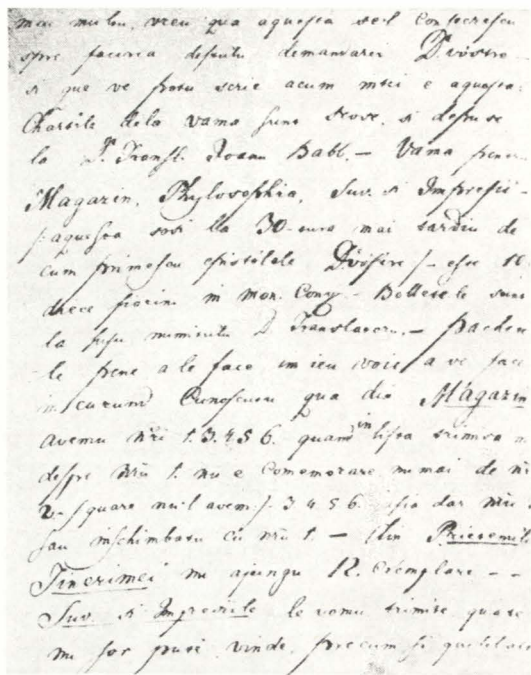 meu multu, vreu qua aquesta seil consecrescu
spre facerea defuntu demandarei Dvostre
si que ve potu scrie acum mici e aquesta.
Chartile dela vama sunt scose, si depuse
la D. Transl. Ioanu Babb. – Vama pene
Magazin, Phylosophia, Suv. si Impresii –
/:aquestea sosi lla 30-eura mai tardiu de
cum primescu epistolele Dvostre/ – este 10.
diece fiorini in mon. Conv. – Bolletele sunt
la susu numitulu D Translatoru. – pachete
le pene a le face in ieu voie a ve face
in curund Cunoscutu qua din Magazin
avemu Nri 1. 3. 4 5 6. quand in lista trimisa
despre Nru 1. nu e Comemorare, numai de
2 – /quare nu'l avem/. 3 4 5 6. asia dar Nru
sau inschimbatu cu Nru 1. – din Priesenulu
Tinerimei nu ajungu 12. Exemplare – –
Suv. si Impresiile le vomu trimite quare
nu sor pute vinde, precum si